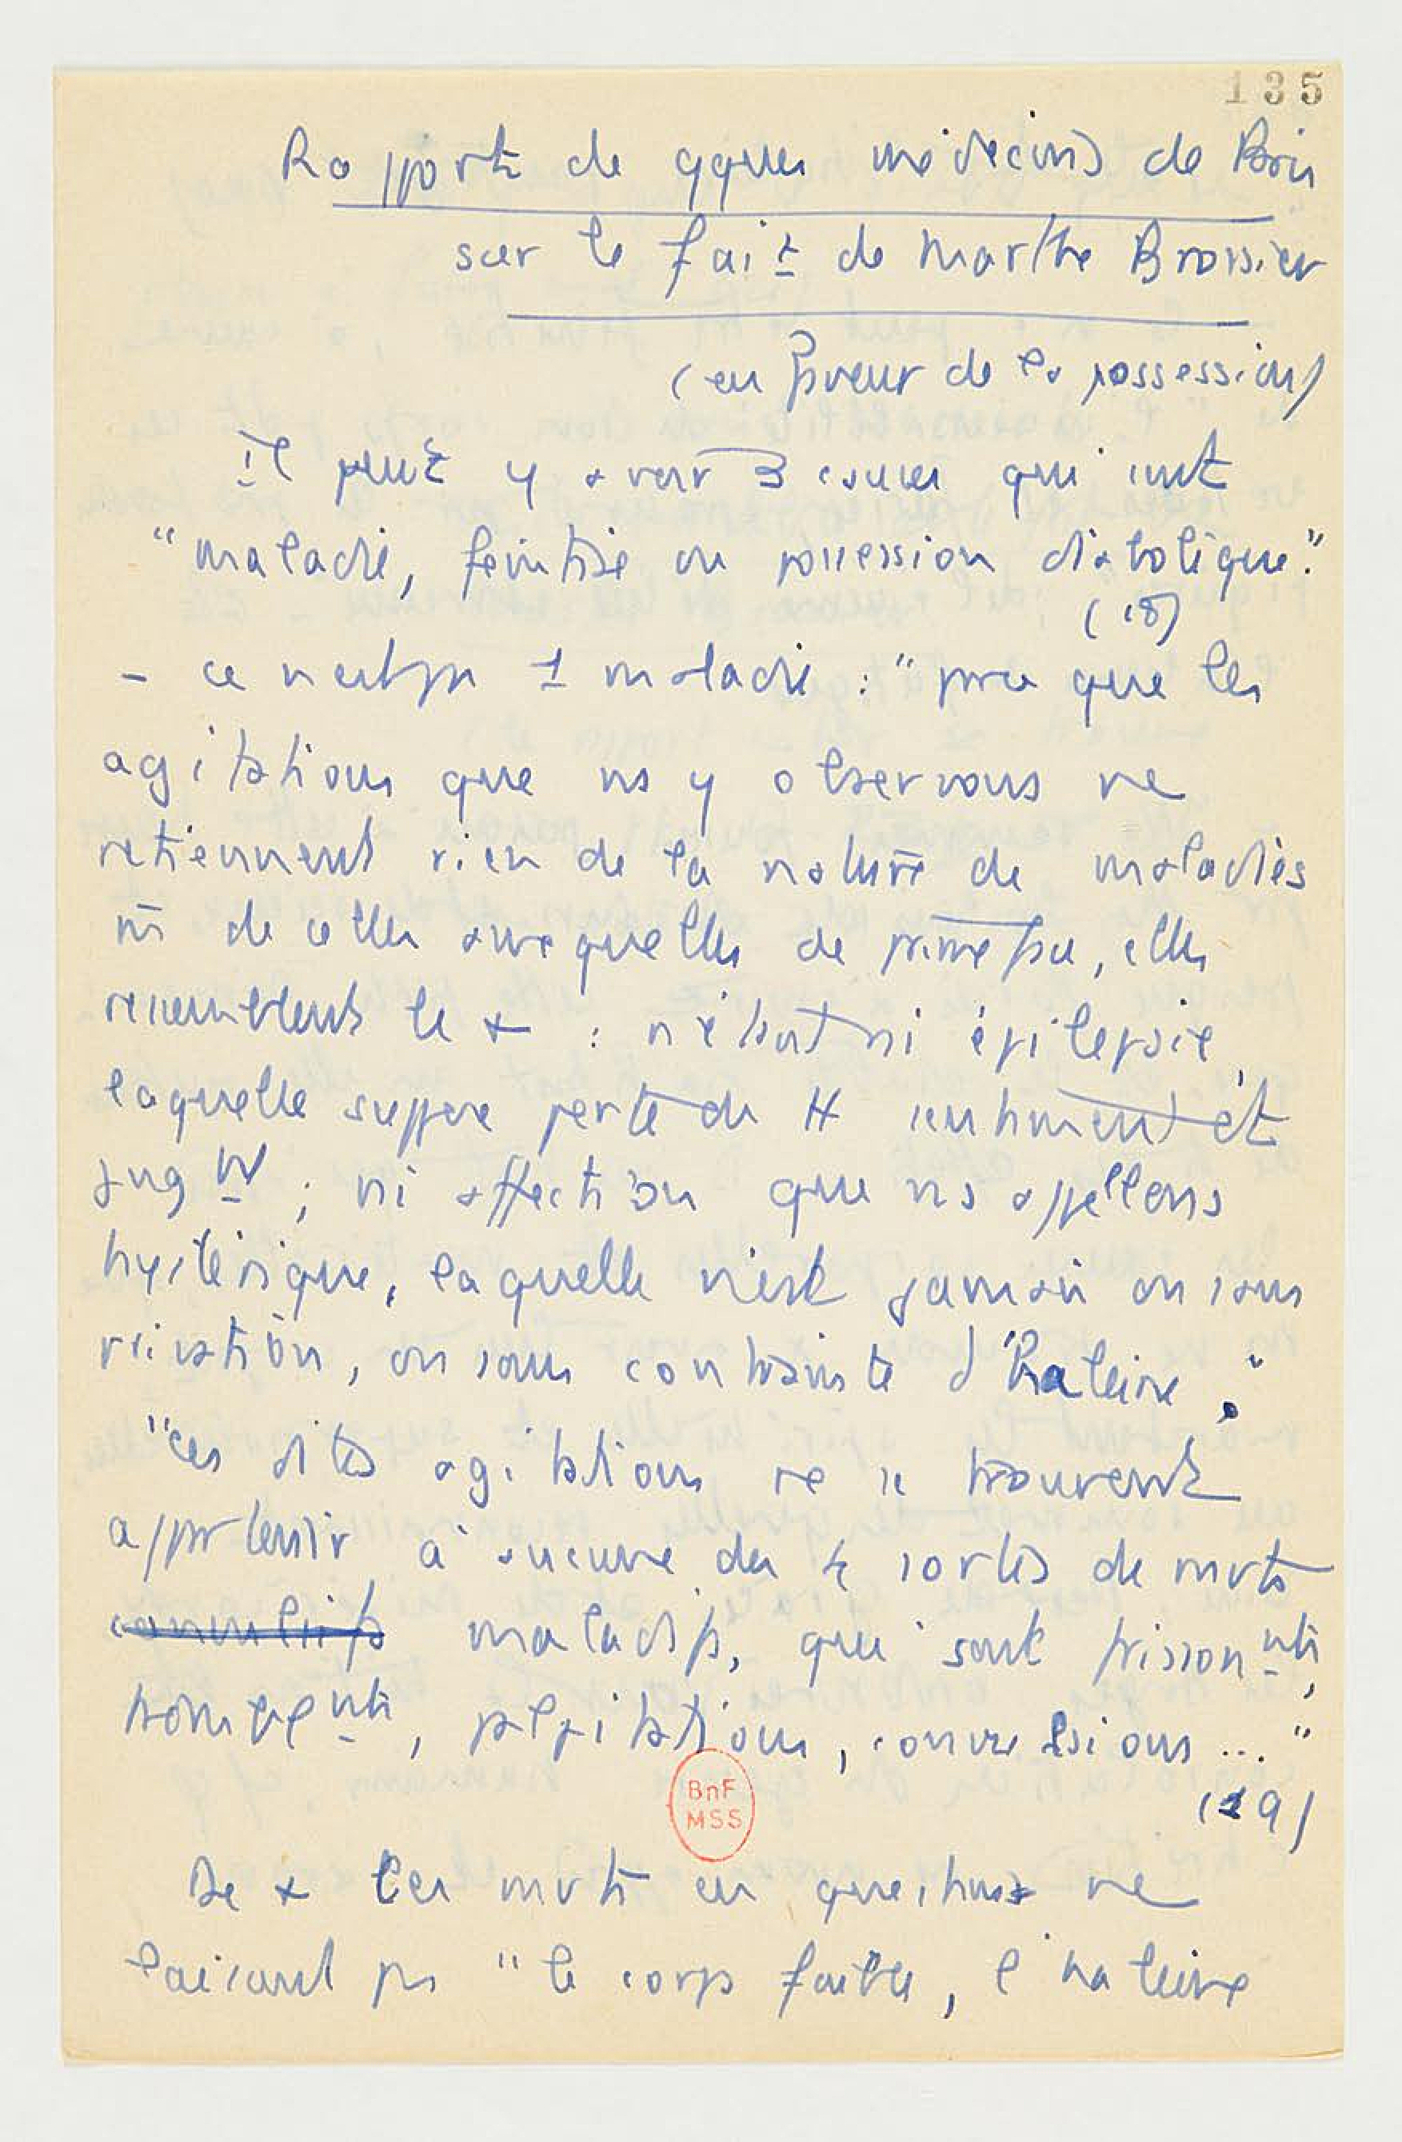 135
Rapport de qques médecins de Paris
sur le fait de Marthe Brossier
(en faveur de la possession)
il peut y avoir 3 causes qui sont
"maladie, feintise ou possession diabolique."
(18)
- ce n'est pas 1 maladie : "parce que les
agitations que ns y observons ne
retiennent rien de la nature de maladies
m̄ de celles auxquelles de prime face, elles
ressemblent le + : n'étant ni épilepsie,
laquelle suppose perte de tt sentiment et
jugt ; ni affection que ns appellons
hystérique, laquelle n'est jamais ou sans
privation, ou sans contrainte d'haleine."
"ces dites agitations ne se trouvent
appartenir à aucune des 4 sortes de mvts
convulsifs maladifs, qui sont frissonnts,
tremblemnts, palpitations, convulsions ..."
(19)
De + les mvts en question ne
laissent pas "le corps faible, l'haleine
BnF
MSS